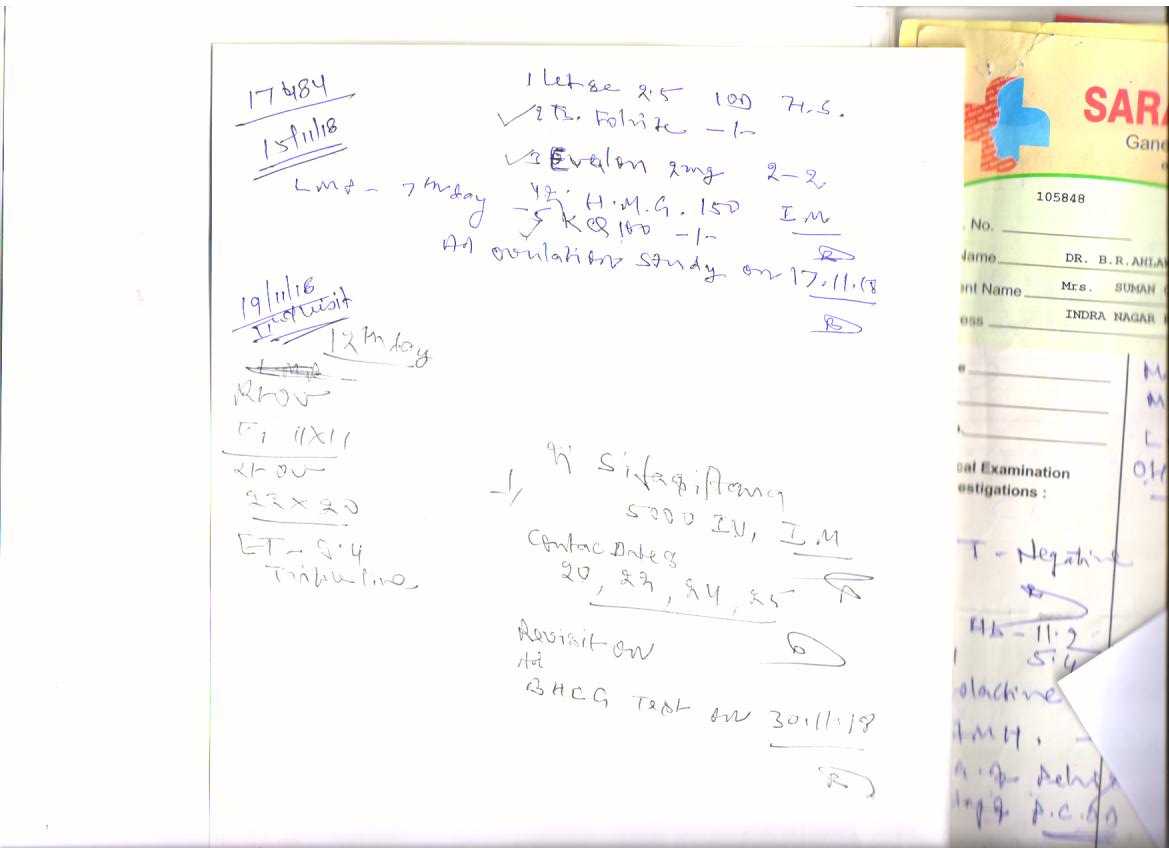 17484
15/11/18
1 Letroe 2.5 1OD H.S.
2 Tb. Folvite -1-
3 Evalon 2mg 2-2
LMP - 7th day
H.M.G. 150 I.M
-5 KQ 100 -1-
Ad ovulation study on 17.11.18
19/11/18
IInd visit
12th day
Rt OV
F1 11X11
Lt OV
22 X 20
ET - 8.4
Triple line
5000 IU, I.M
Contac Dates
20, 22, 24, 25
Revisit on
BHCG Test on 30.11.18
SARA
Gane
105848
No.
Name DR. B.R.AHLAW
ent Name Mrs. SUMAN
ess INDRA NAGAR
cal Examination
estigations :
T - Negative
Hb - 11.2
5.4
olactine
AMH. -